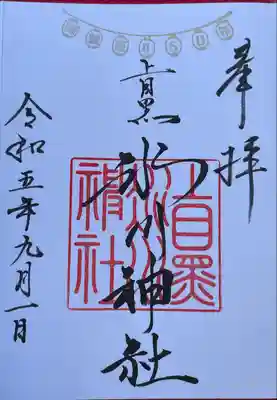 奉拝
上目黒
氷川神社
上目黒氷川神社
令和五年九月一日